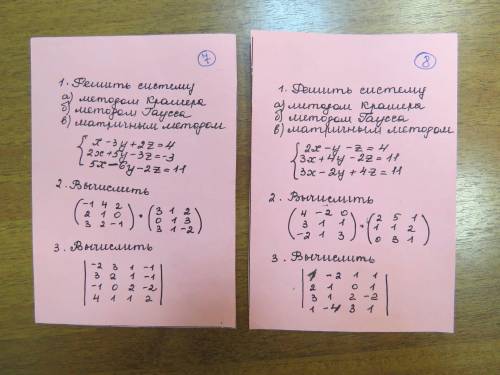 7
1. Решить систему
а) методом Крамера
б) методом Гаусса
в) матричным методом
x-3y+2z=4
2x+5y-3z=-3
5x-6y-2z=11
2. Вычислить
(-1 4 2
2 1 0
3 2 -1) * (3 1 2
0 1 3
3 1 -2)
3. Вычислить
-2 3 1 -1
3 2 1 -1
-1 0 2 -2
4 1 1 2
8
1. Решить систему
а) методом Крамера
б) методом Гаусса
в) матричным методом
2x-y-z=4
3x+4y-2z=11
3x-2y+4z=11
2. Вычислить
(4 -2 0
3 1 1
-2 1 3) * (2 5 1
1 1 2
0 3 1)
3. Вычислить
1 -2 1 1
2 1 0 1
3 1 2 -2
1 -4 3 1